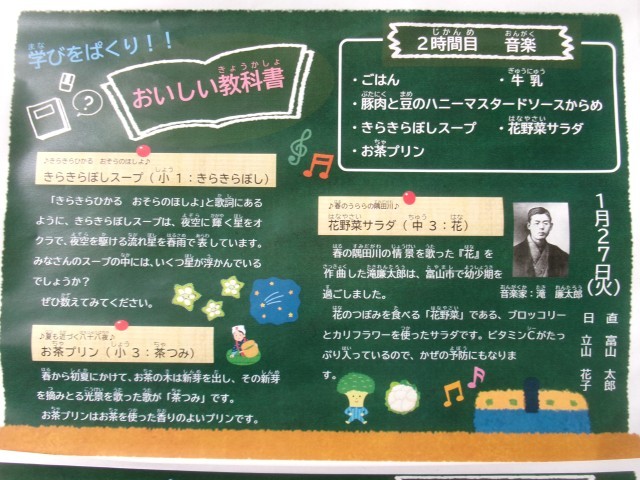 学びをぱくり！！
おいしい教科書
2時間目　音楽
・ごはん　・牛乳
・豚肉と豆のハニーマスタードソースからめ
・きらきらぼしスープ　・花野菜サラダ
・お茶プリン
♪きらきらひかる　おそらのほしよ♪
きらきらぼしスープ（小1：きらきらぼし）
「きらきらひかる　おそらのほしよ」と歌詞にある
ように、きらきらぼしスープは、夜空に輝く星をオ
クラで、夜空を駆ける流れ星を春雨で表しています。
みなさんのスープの中には、いくつ星が浮かんでいる
でしょうか？
ぜひ数えてみてください。
♪夏も近づく八十八夜♪
お茶プリン（小3：茶つみ）
春から初夏にかけて、お茶の木は新芽を出し、その新芽
を摘みとる光景を歌った歌が「茶つみ」です。
お茶プリンはお茶を使った香りのよいプリンです。
♪春のうららの隅田川♪
花野菜サラダ（中3：花）
春の隅田川の情景を歌った『花』を
作曲した滝廉太郎は、富山市で幼少期を
過ごしました。
花のつぼみを食べる「花野菜」である、ブロッコリー
とカリフラワーを使ったサラダです。ビタミンCがたっ
ぷり入っているので、かぜの予防にもなりま
す。
音楽家：滝　廉太郎
1月27日（火）
日直　富山　太郎
立山　花子